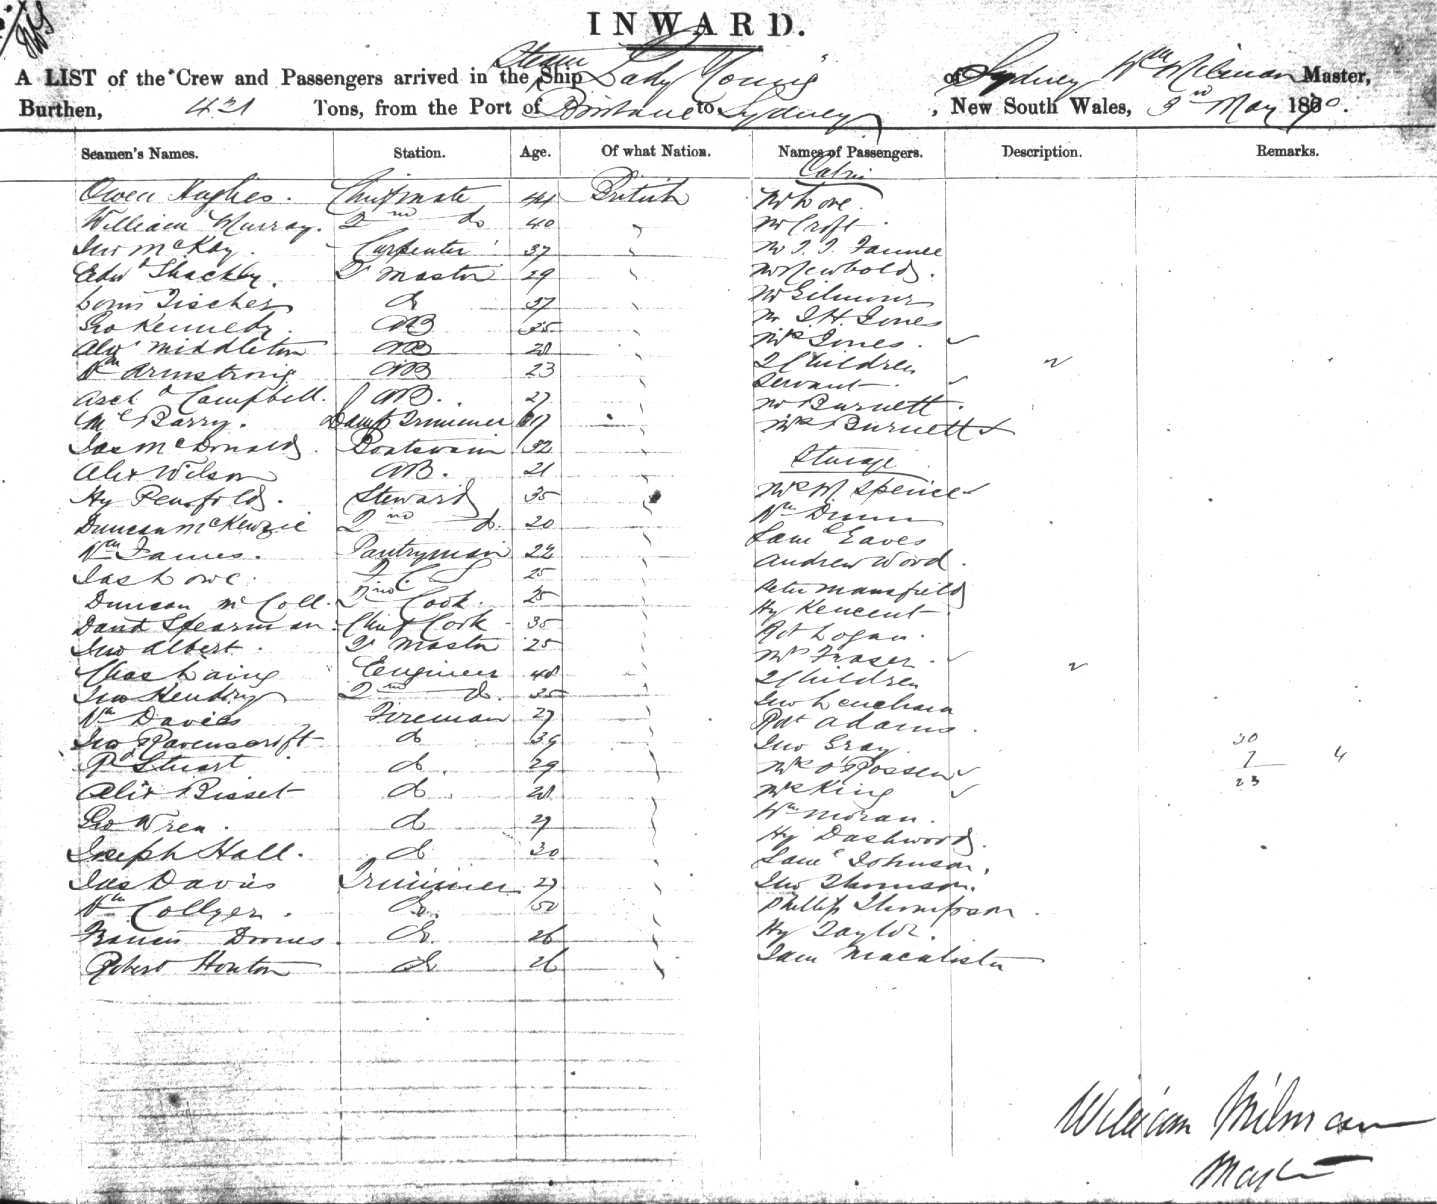 INWARD.
A LIST of the Crew and Passengers arrived in the Steam Ship "Lady Young" of Sydney Wm Milman Master,
Burthen, 421 Tons, from the Port of Brisbane to Sydney, New South Wales, 9 May 1870.
Seamen's Names. Station. Age. Of what Nation. Names of Passengers. Description. Remarks.
Cabin
Owen Hughes. Chief mate 44 British Mr Love
William Murray. 2nd do 40 Mr Croft
Jno McKay Carpenter 37 Mr
Edwd Shackley. Qr Master 29 Mr Newbold.
Louis Fischer do 37 Mr Gilmour
Geo Kennedy. AB 35 Mr J. H. Jones
Alexr Middleton AB 28 Mrs Jones.
Wm Armstrong AB 23 2 Children
Archd Campbell. AB. 27 Servant
Mc Barry. Trimmer Mr Burnett
Jas McDonald Boatswain 32 Mrs Burnett
Alex Wilson AB. 21 Steerage
Hy Penfold. Steward 35 Mrs W. Spence
Duncan McKenzie 2nd do. 20 Wm Dunn
Wm James. Pantryman 22 Saml Eaves
Jas Lowe. 25 Andrew Wood.
Duncan McColl. 2nd Cook. 25 Peter Mansfield
David Spearman Chief Cook 35 Hy
Jno Albert. Qr Master 25 Rot Logan.
Chas Laing Engineer 48 Mrs Fraser.
Jno Hendry 2nd do. 35 2 Children
Wm Davies Fireman 27 Jno Lenehan
Jno Ravenscroft do 39 Robt Adams
Rd Stuart do. 29 Jno Gray 30
Alex Bisset do 28 Mrs 7 4
Geo Wren. do 29 Mrs King 23
Joseph Hall. do 30 Wm Moran.
Jas Davis Trimmer 27 Hy Dashwood.
Wm Collyer. do. 50 Saml Johnson.
Francis do. 26 Jno Thomson.
Robert Houton do 26 Phillip Thompson
Hy Taylor.
Macalister
William Milman
Master